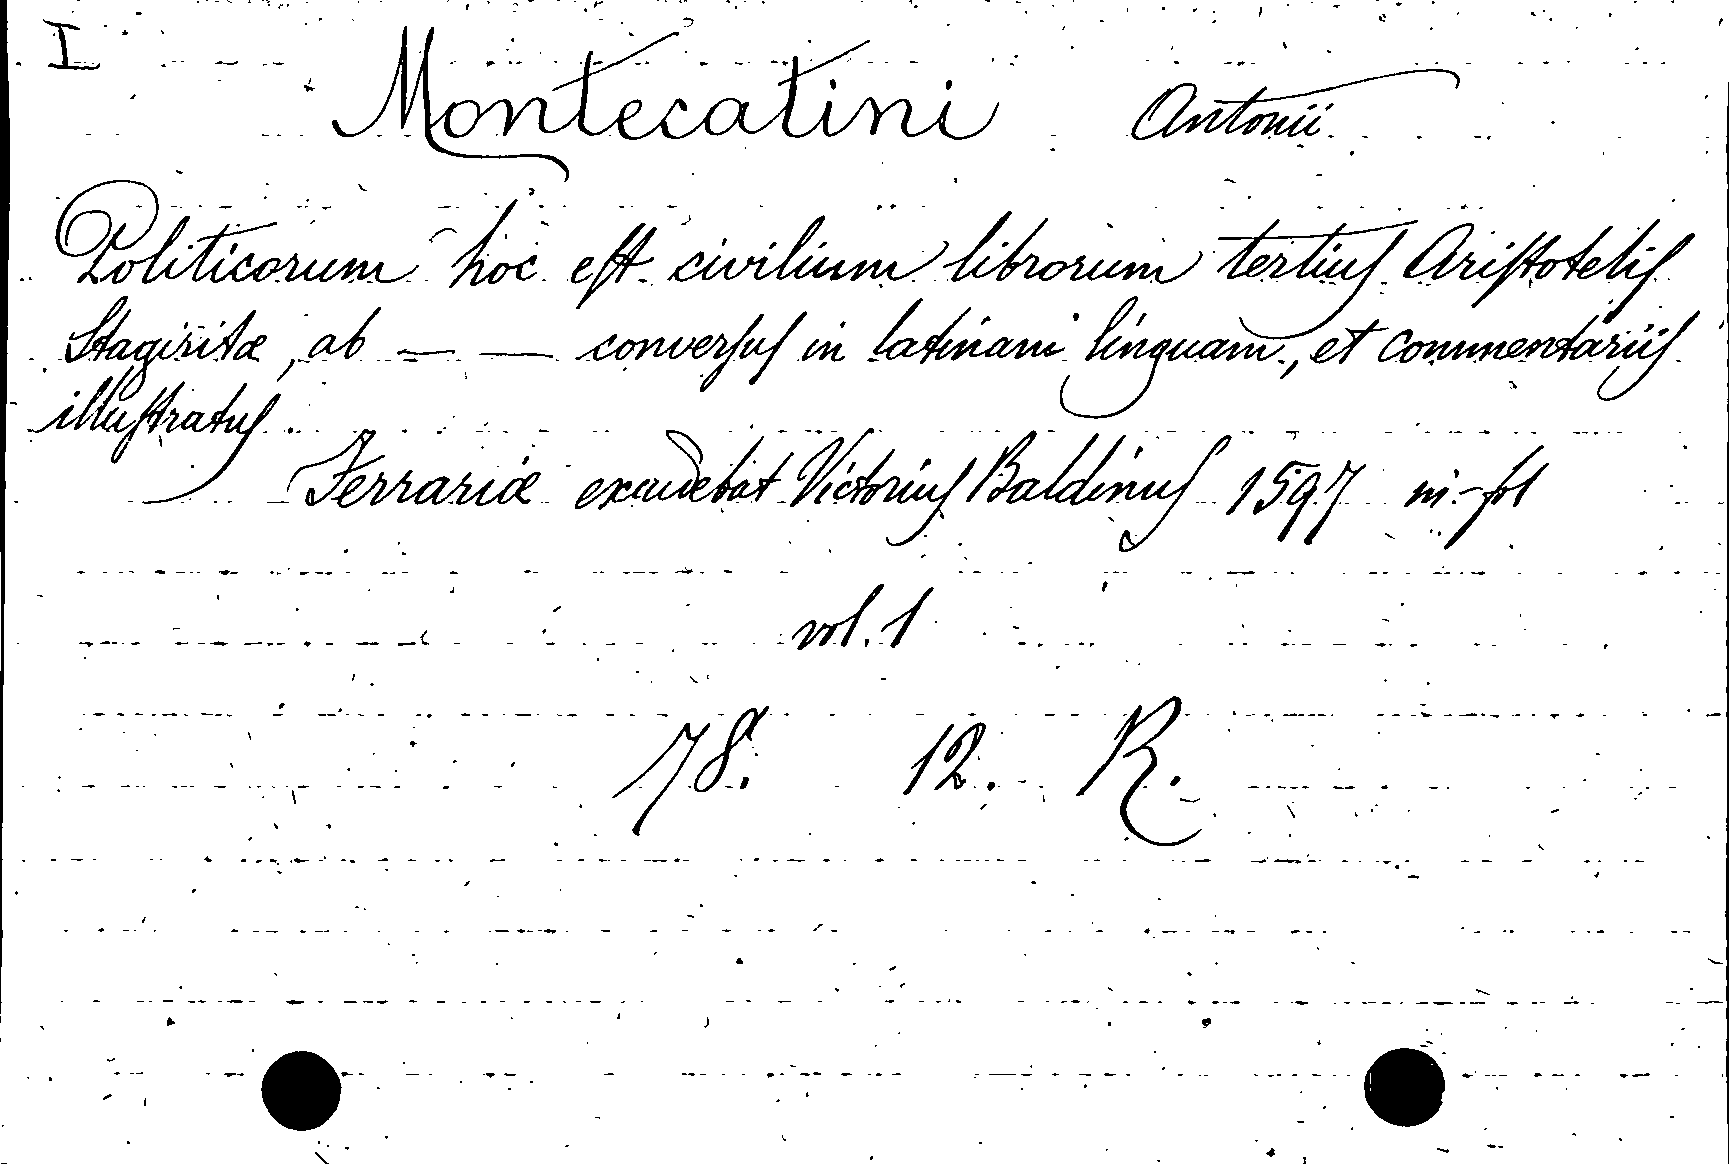 I
Montecatini Antonii
Politicorum hoc est civilium librorum tertius Aristotelis
Stagiritæ, ab — — conversus in latinam linguam, et commentariis
illustratus.
Ferrariæ excudebat Victorius Baldinus 1597 in-fol
vol. 1
78. 12. R.